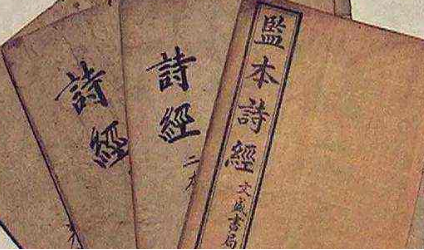 監本詩經 文盛書局
詩經 二本
詩經 本